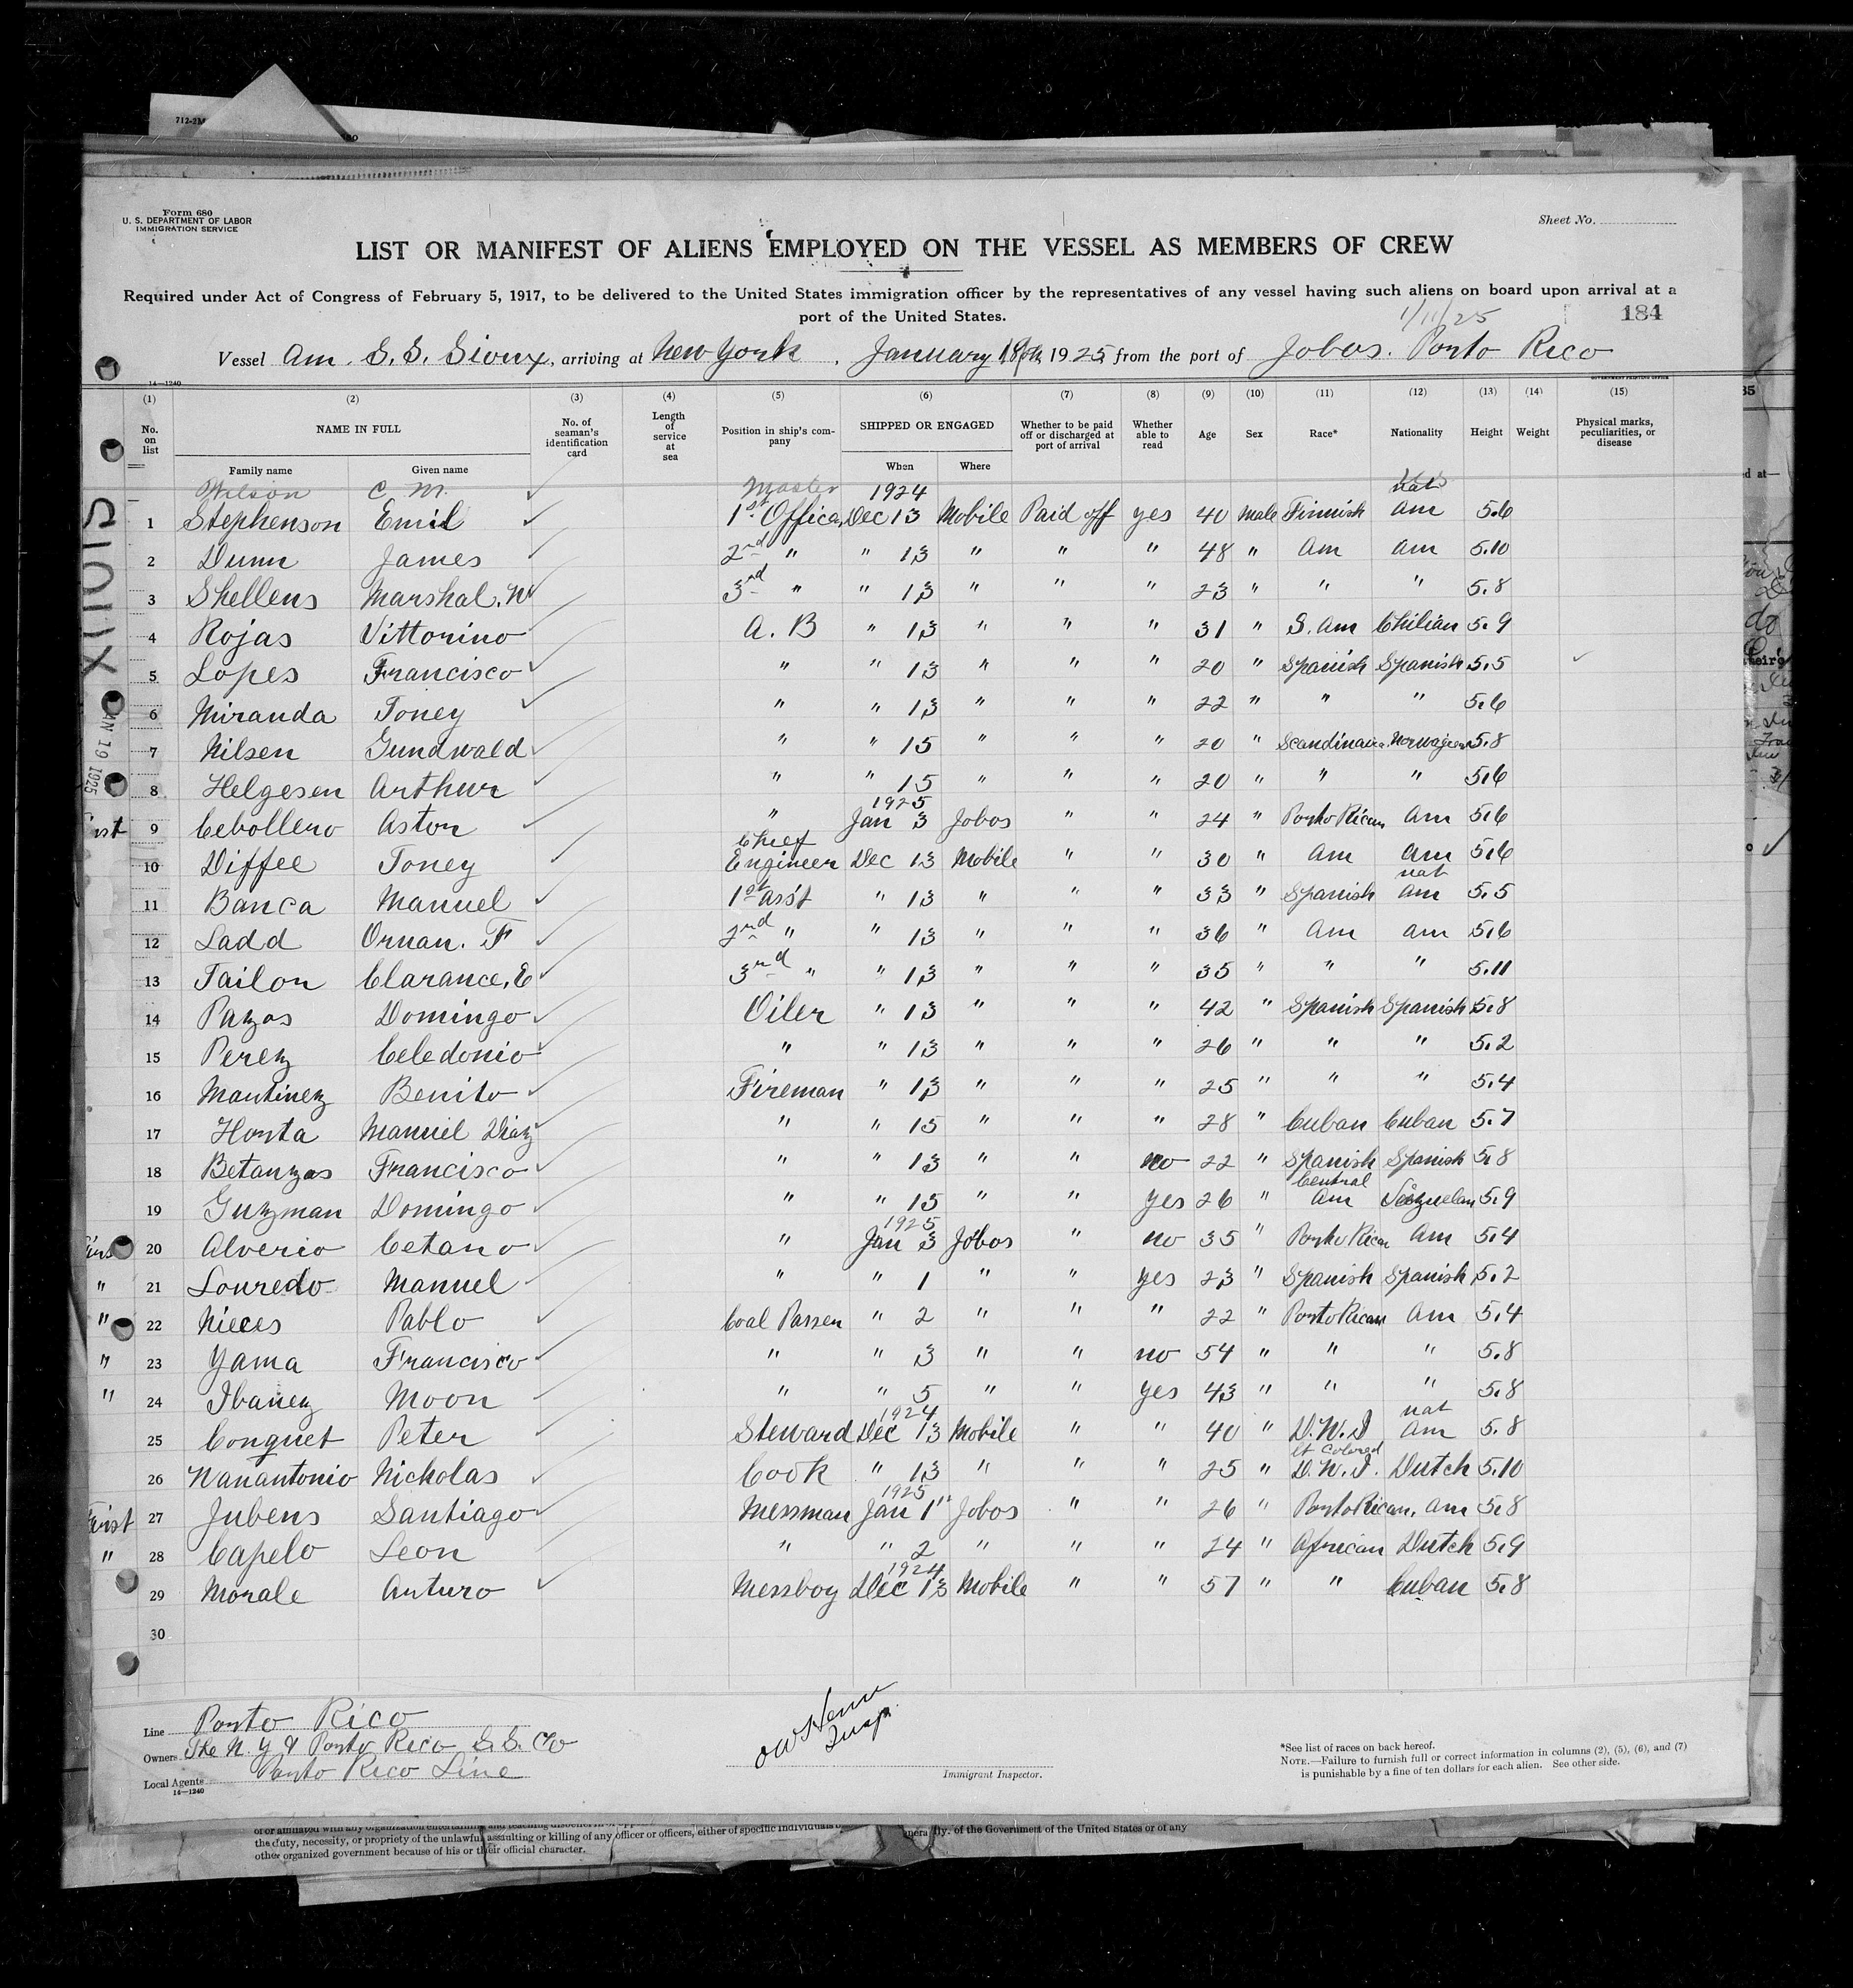 712-2M
Form 680
U. S. DEPARTMENT OF LABOR
IMMIGRATION SERVICE
Sheet No.
LIST OR MANIFEST OF ALIENS EMPLOYED ON THE VESSEL AS MEMBERS OF CREW
Required under Act of Congress of February 5, 1917, to be delivered to the United States immigration officer by the representatives of any vessel having such aliens on board upon arrival at a
port of the United States.
1/11/25
184
Vessel Am. S.S. Sioux, arriving at New York, January 19th 1925 from the port of Jobos. Porto Rico
14—1240
GOVERNMENT PRINTING OFFICE
(1) (2) (3) (4) (5) (6) (7) (8) (9) (10) (11) (12) (13) (14) (15)
No. on list NAME IN FULL No. of seaman's identification card Length of service at sea Position in ship's company SHIPPED OR ENGAGED Whether to be paid off or discharged at port of arrival Whether able to read Age Sex Race* Nationality Height Weight Physical marks, peculiarities, or disease
Family name Given name When Where
Wilson C M. Master
1924 nat
1 Stephenson Emil 1st Officer Dec 13 Mobile Paid off yes 40 male Finnish am 5.6
2 Dunn James 2nd " " 13 " " " 48 " am am 5.10
3 Shellens Marshal. W 3rd " " 13 " " " 23 " " " 5.8
4 Rojas Vittorino A. B " 13 " " " 31 " S. am Chilian 5.9
5 Lopes Francisco " " 13 " " 20 " Spanish Spanish 5.5
6 Miranda Toney " " 13 " " " 22 " " " 5.6
7 Nilsen Gundwald " " 15 " " " 20 " Scandinavia Norwagien 5.8
8 Helgesen Arthur " " 15 " " " 20 " " " 5.6
1925
9 Cebollero Aston " Jan 3 Jobos " " 24 " Porto Rican am 5.6
Chief
10 Diffee Toney Engineer Dec 13 Mobile " " 30 " am am 5.6
nat
11 Banca Manuel 1st ass't " 13 " " " 33 " Spanish am 5.5
12 Ladd Ornan. F 2nd " " 13 " " " 36 " am am 5.6
13 Tailor Clarance, E 3rd " " 13 " " " 35 " " " 5.11
14 Pazos Domingo Oiler " 13 " " " 42 " Spanish Spanish 5.8
15 Perez Celedonio " " 13 " " " 26 " " " 5.2
16 Martinez Benito Fireman " 13 " " " 25 " " " 5.4
17 Horta Manuel Diaz " " 15 " " " 28 " Cuban Cuban 5.7
18 Betanzos Francisco " " 13 " " no 22 " Spanish Spanish 5.8
Central
19 Guzman Domingo " " 15 " " yes 26 " am 5.9
1925
20 Alverio Cetano " Jan 3 Jobos " no 35 " Porto Rican am 5.4
21 Louredo Manuel " " 1 " " yes 23 " Spanish Spanish 5.2
22 Nieces Pablo Coal Passer " 2 " " " 22 " Porto Rican am 5.4
23 Yama Francisco " " 3 " " no 54 " " " 5.8
24 Ibanez Moon " " 5 " " yes 43 " " " 5.8
1924 nat
25 Conquet Peter Steward Dec 13 Mobile " " 40 " D.W.I am 5.8
lt colored
26 Wanantonio Nickolas Cook " 13 " " " 25 " D.W.I. Dutch 5.10
1925
First 27 Jubens Santiago Messman Jan 1" Jobos " " 26 " Porto Rican. am 5.8
" 28 Capelo Leon " " 2 " " " 24 " African Dutch 5.9
1924
29 Morale Arturo Messboy Dec 13 Mobile " " 57 " " Cuban 5.8
30
SIOUX
JAN 19 1925
Line Porto Rico
Owners The N. Y & Porto Rico S.S. Co
Local Agents Porto Rico Line
14—1240
Insp.
Immigrant Inspector.
*See list of races on back hereof.
NOTE.—Failure to furnish full or correct information in columns (2), (5), (6), and (7)
is punishable by a fine of ten dollars for each alien. See other side.
the duty, necessity, or propriety of the unlawful assaulting or killing of any officer or officers, either of specific individuals
of the Government of the United States or of any
other organized government because of his or their official character.